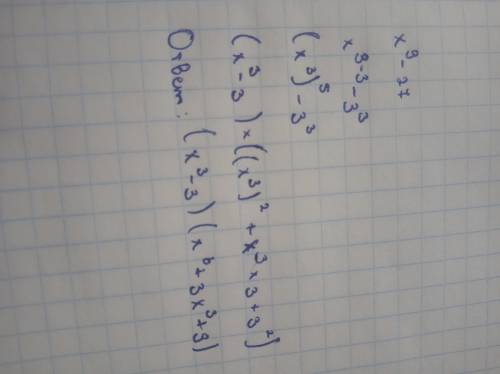 x⁹ - 27
x³·³ - 3³
(x³)³ - 3³
(x³ - 3) × ((x³)² + x³ × 3 + 3²)
Ответ: (x³ - 3)(x⁶ + 3x³ + 9)